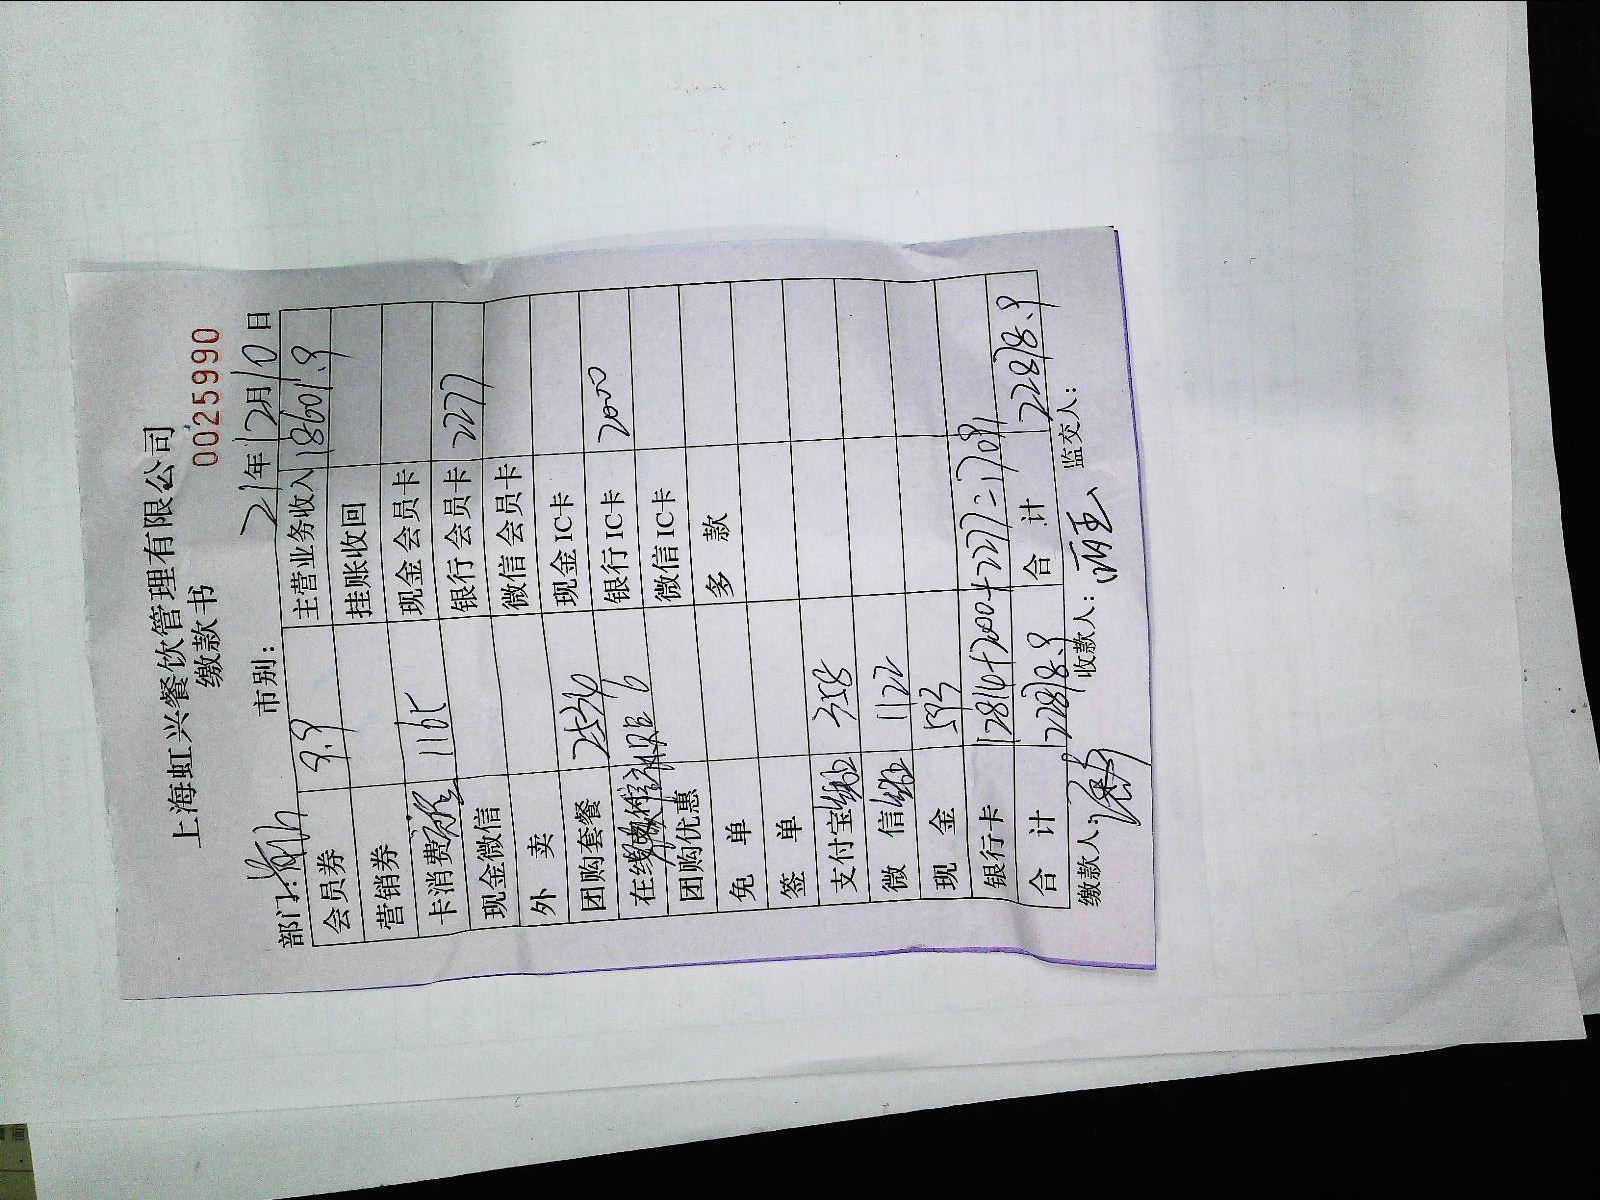 上海虹兴餐饮管理有限公司
缴款书 0025990
部门: 市别: 21年12月10日
会员券 9.9 主营业务收入 18601.9
营销券 挂账收回
卡消费 1165 现金会员卡
现金微信 银行会员卡 2277
外 卖 微信会员卡
团购套餐 2534 现金IC卡
在线 6 银行IC卡 2000
团购优惠 微信IC卡
免 单 多 款
签 单
支付宝 358
微 信 1122
现 金 593
银行卡 12814+2000+2277=17091
合 计 22878.9 合 计 22878.9
缴款人: 收款人: 监交人: